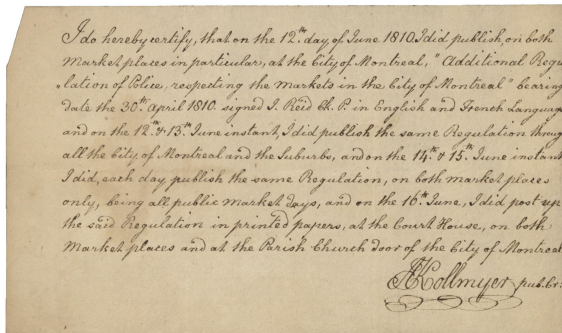 I do hereby certify, that on the 12th day of June 1810. I did publish, on both
Market places in particular, at the City of Montreal, "Additional Regu
lation of Police, respecting the Markets in the City of Montreal" bearing
date the 30th April 1810. signed J. Reid Ck. P. in English and French Language
and on the 12th & 13th June instant, I did publish the same Regulation throug
all the City of Montreal and the Suburbs, and on the 14th & 15th June instant
I did, each day publish the same Regulation, on both market places
only, being all public Market days, and on the 16th June, I did post up
the said Regulation in printed papers, at the Court House, on both
Market places and at the Parish Church door of the City of Montreal
Kollmyer pub. Cr.